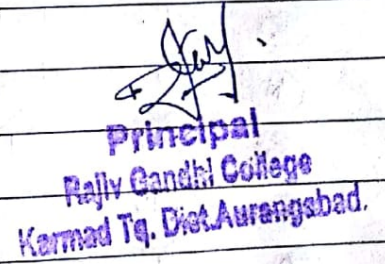 Principal
Rajiv Gandhi College
Karmad Tq. Dist.Aurangabad.